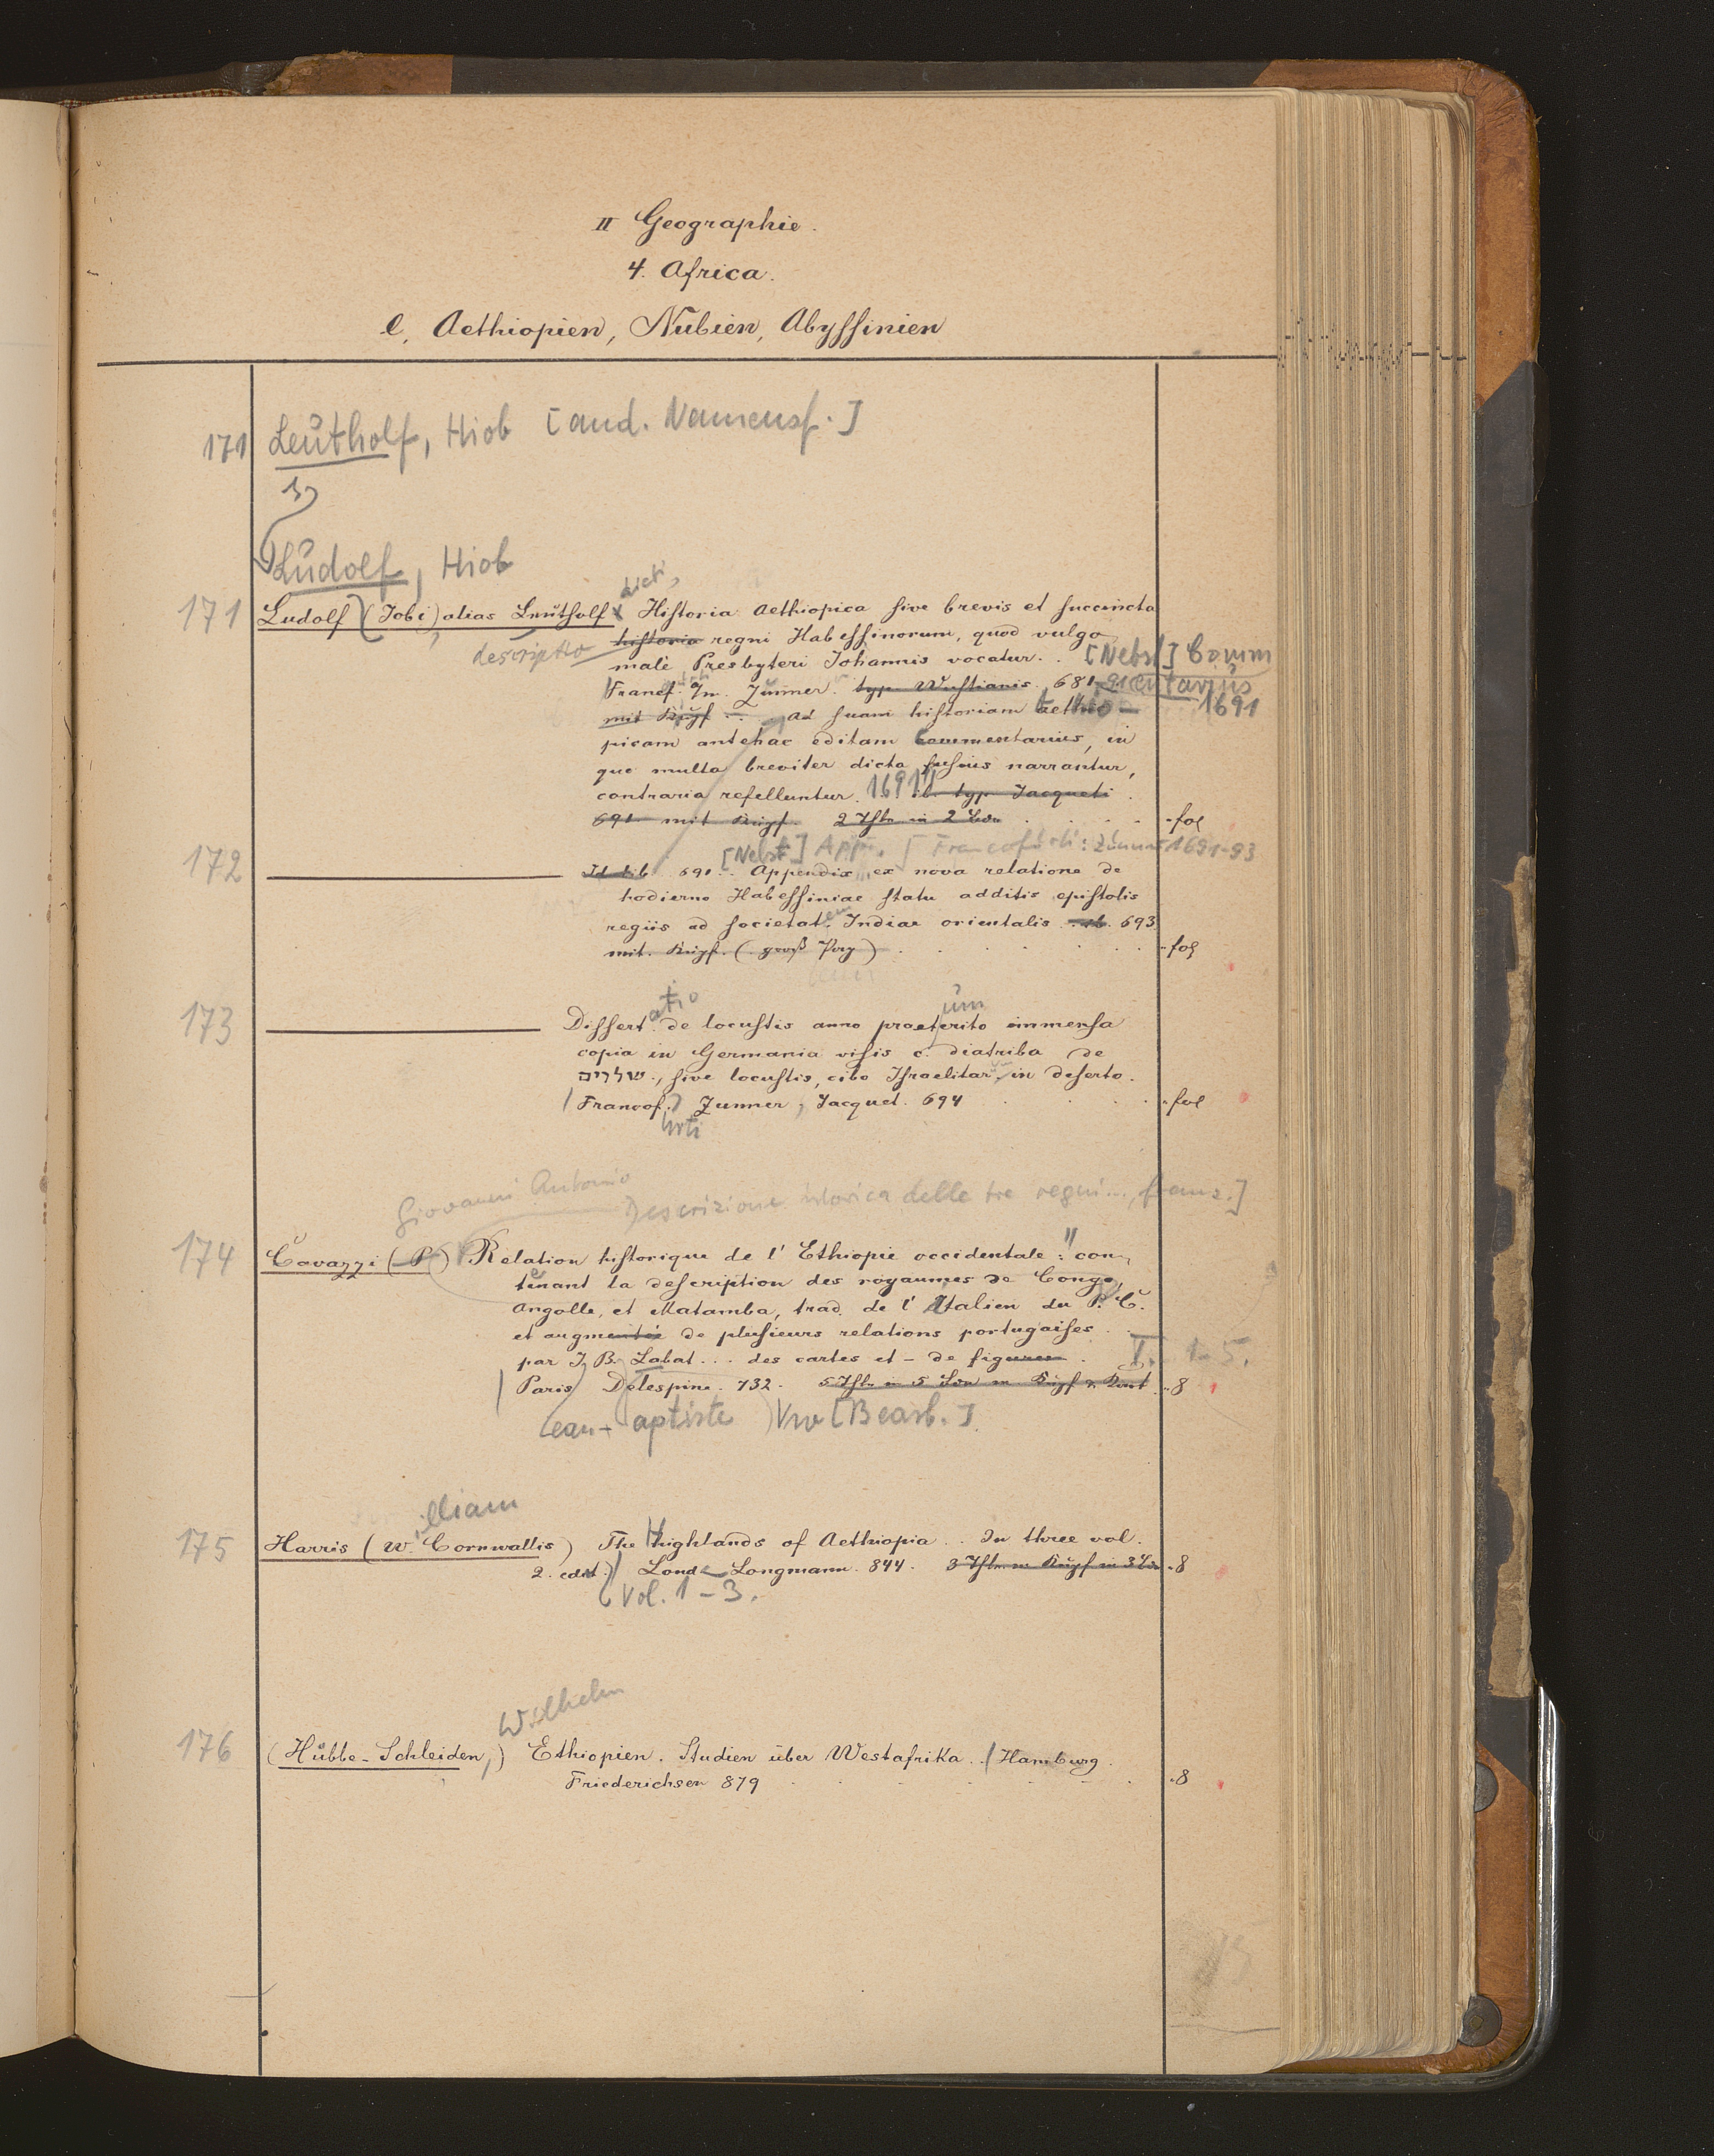 II Geographie.
4. Africa.
e, Aethiopien, Nubien, Abyssinien
171 Leutholf, Hiob [and. Namensf.]
Ludolf, Hiob
dicti,
171 Ludolf (Jobi) alias Leutholf Historia Aethiopica sive brevis et succincta
descriptio historia regni Habessinorum, quod vulgo
male Presbyteri Johannis vocatur. . [Nebst] Comm
Francf. Zunner. typ. Wustianis. 681-91 entarius
mit Kupf ad suam historiam aethio- 1691
picam antehac editam Commentarius, in
quo multa breviter dicta fusius narrantur,
contraria refelluntur. 1691 ib. typ. Jacqueti.
691 mit Kupf. 2 Thle in 2 Bdn fol
[Nebst] App. [Francofurti: Zunner 1691-93
172 691. . Appendix ex nova relatione de
hodierno Habessiniae statu additis epistolis
regiis ad societatem Indiae orientalis ib. 693
mit. Kupf. (groß Pap) fol
atio um
173 Dissert. de locustis anno praeterito immensa
copia in Germania visis c. diatriba de
שלוים, sive locustis, cibo Israelitar. in deserto.
Francof. Zunner, Jacquet. 694 fol
urti
Giovanni Antonio Descrizione istorica delle tre regni..., franz.]
174 Cavazzi (P.) Relation historique de l'Ethiopie occidentale: con-
tenant la description des royaumes de Congo,
Angolle, et Matamba, trad. de l'Italien du P. C.
et augmentée de plusieurs relations portugaises
par J. B. Labat... des cartes et - de figures. T. 1-5.
Paris Delespine. 732. 5 Thle in 5 Bdn m Kupf 8
ean- aptiste [Bearb.]
illiam
175 Harris (W. Cornwallis) The Highlands of Aethiopia . . In three vol.
2. edit. Lond Longmann. 844. 3 Thle m Kupf in 3 Bdn 8
Vol. 1-3.
Wilhelm
176 (Hübbe-Schleiden,) Ethiopien. Studien über Westafrika. . Hamburg.
Friederichsen 879 8